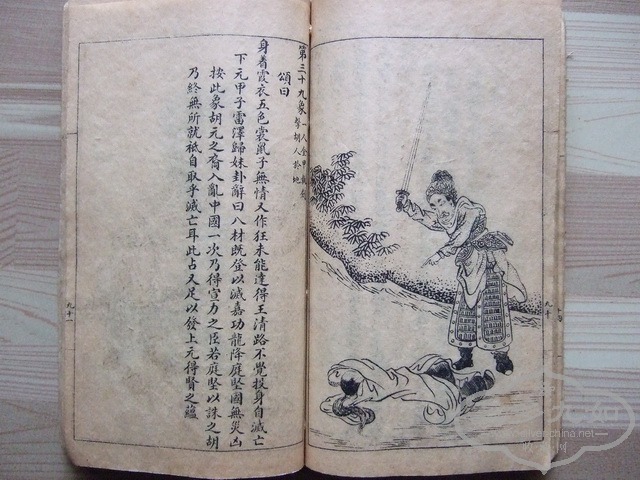 第三十九象 一人金甲執
擊胡人於地
頌曰
身着霞衣五色裳鼠子無情又作狂未能達得王清路不覺投身自滅亡
下元甲子雷澤歸妹卦辭曰八材既登以滅嘉功龍降庭堅國無災凶
按此象胡元之裔入亂中國一次乃得宣力之臣若庭堅以誅之胡
乃終無所就祇自取乎滅亡耳此占又足以發上元得賢之蘊
九十一
九十
china.net